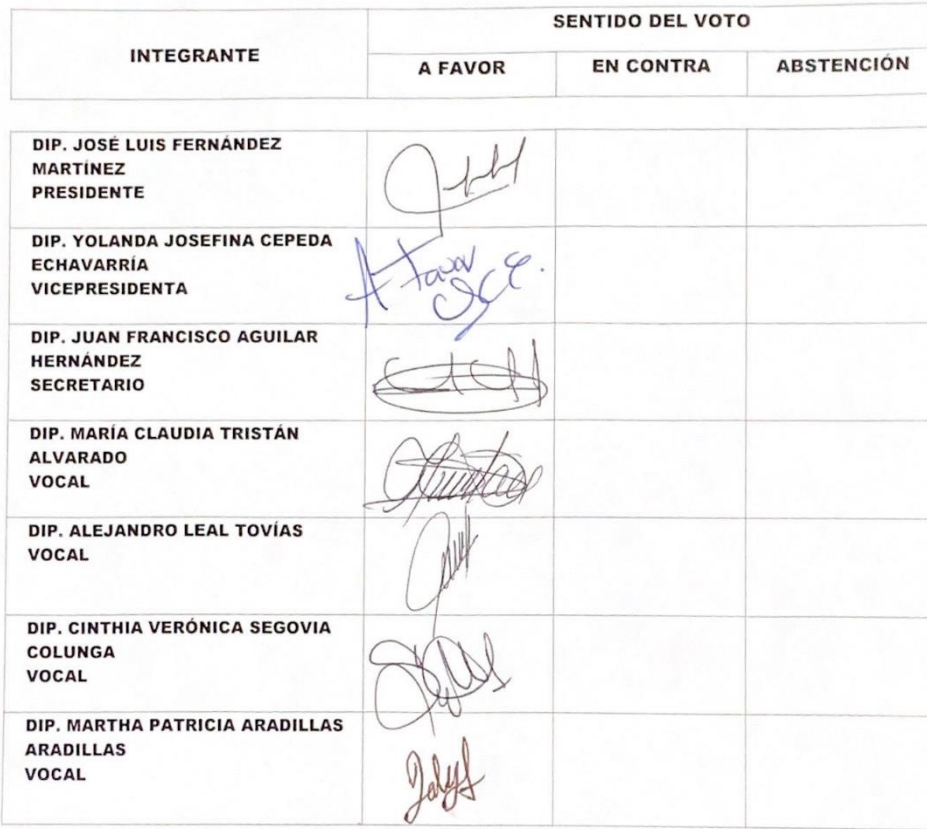 INTEGRANTE
SENTIDO DEL VOTO
A FAVOR
EN CONTRA
ABSTENCIÓN
DIP. JOSÉ LUIS FERNÁNDEZ
MARTÍNEZ
PRESIDENTE
DIP. YOLANDA JOSEFINA CEPEDA
ECHAVARRÍA
VICEPRESIDENTA
A favor
DIP. JUAN FRANCISCO AGUILAR
HERNÁNDEZ
SECRETARIO
DIP. MARÍA CLAUDIA TRISTÁN
ALVARADO
VOCAL
DIP. ALEJANDRO LEAL TOVÍAS
VOCAL
DIP. CINTHIA VERÓNICA SEGOVIA
COLUNGA
VOCAL
DIP. MARTHA PATRICIA ARADILLAS
ARADILLAS
VOCAL